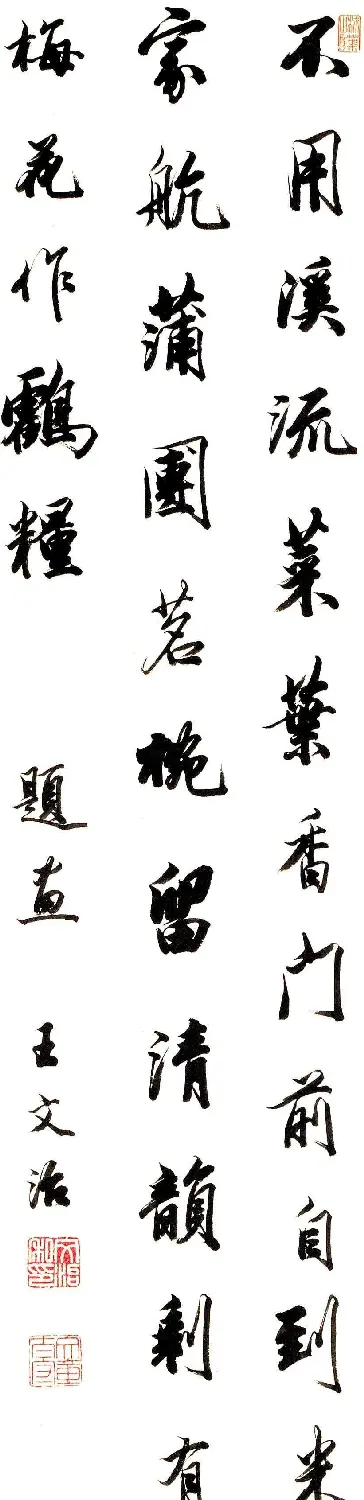 不用溪流菜葉香門前自到米
家航蒲團茗椀留清韻剩有
梅花作鶴糧 題画 王文治